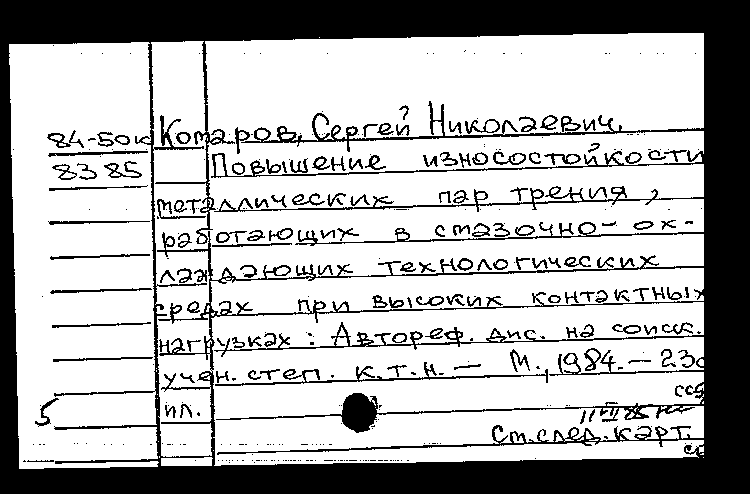 84-50ю Комаров, Сергей Николаевич.
8385 Повышение износостойкости
металлических пар трения,
работающих в смазочно-ох-
лаждающих технологических
средах при высоких контактных
нагрузках: Автореф. дис. на соиск.
учен. степ. к.т.н. — М., 1984. — 23с
5 ил.
Ст. след. карт.